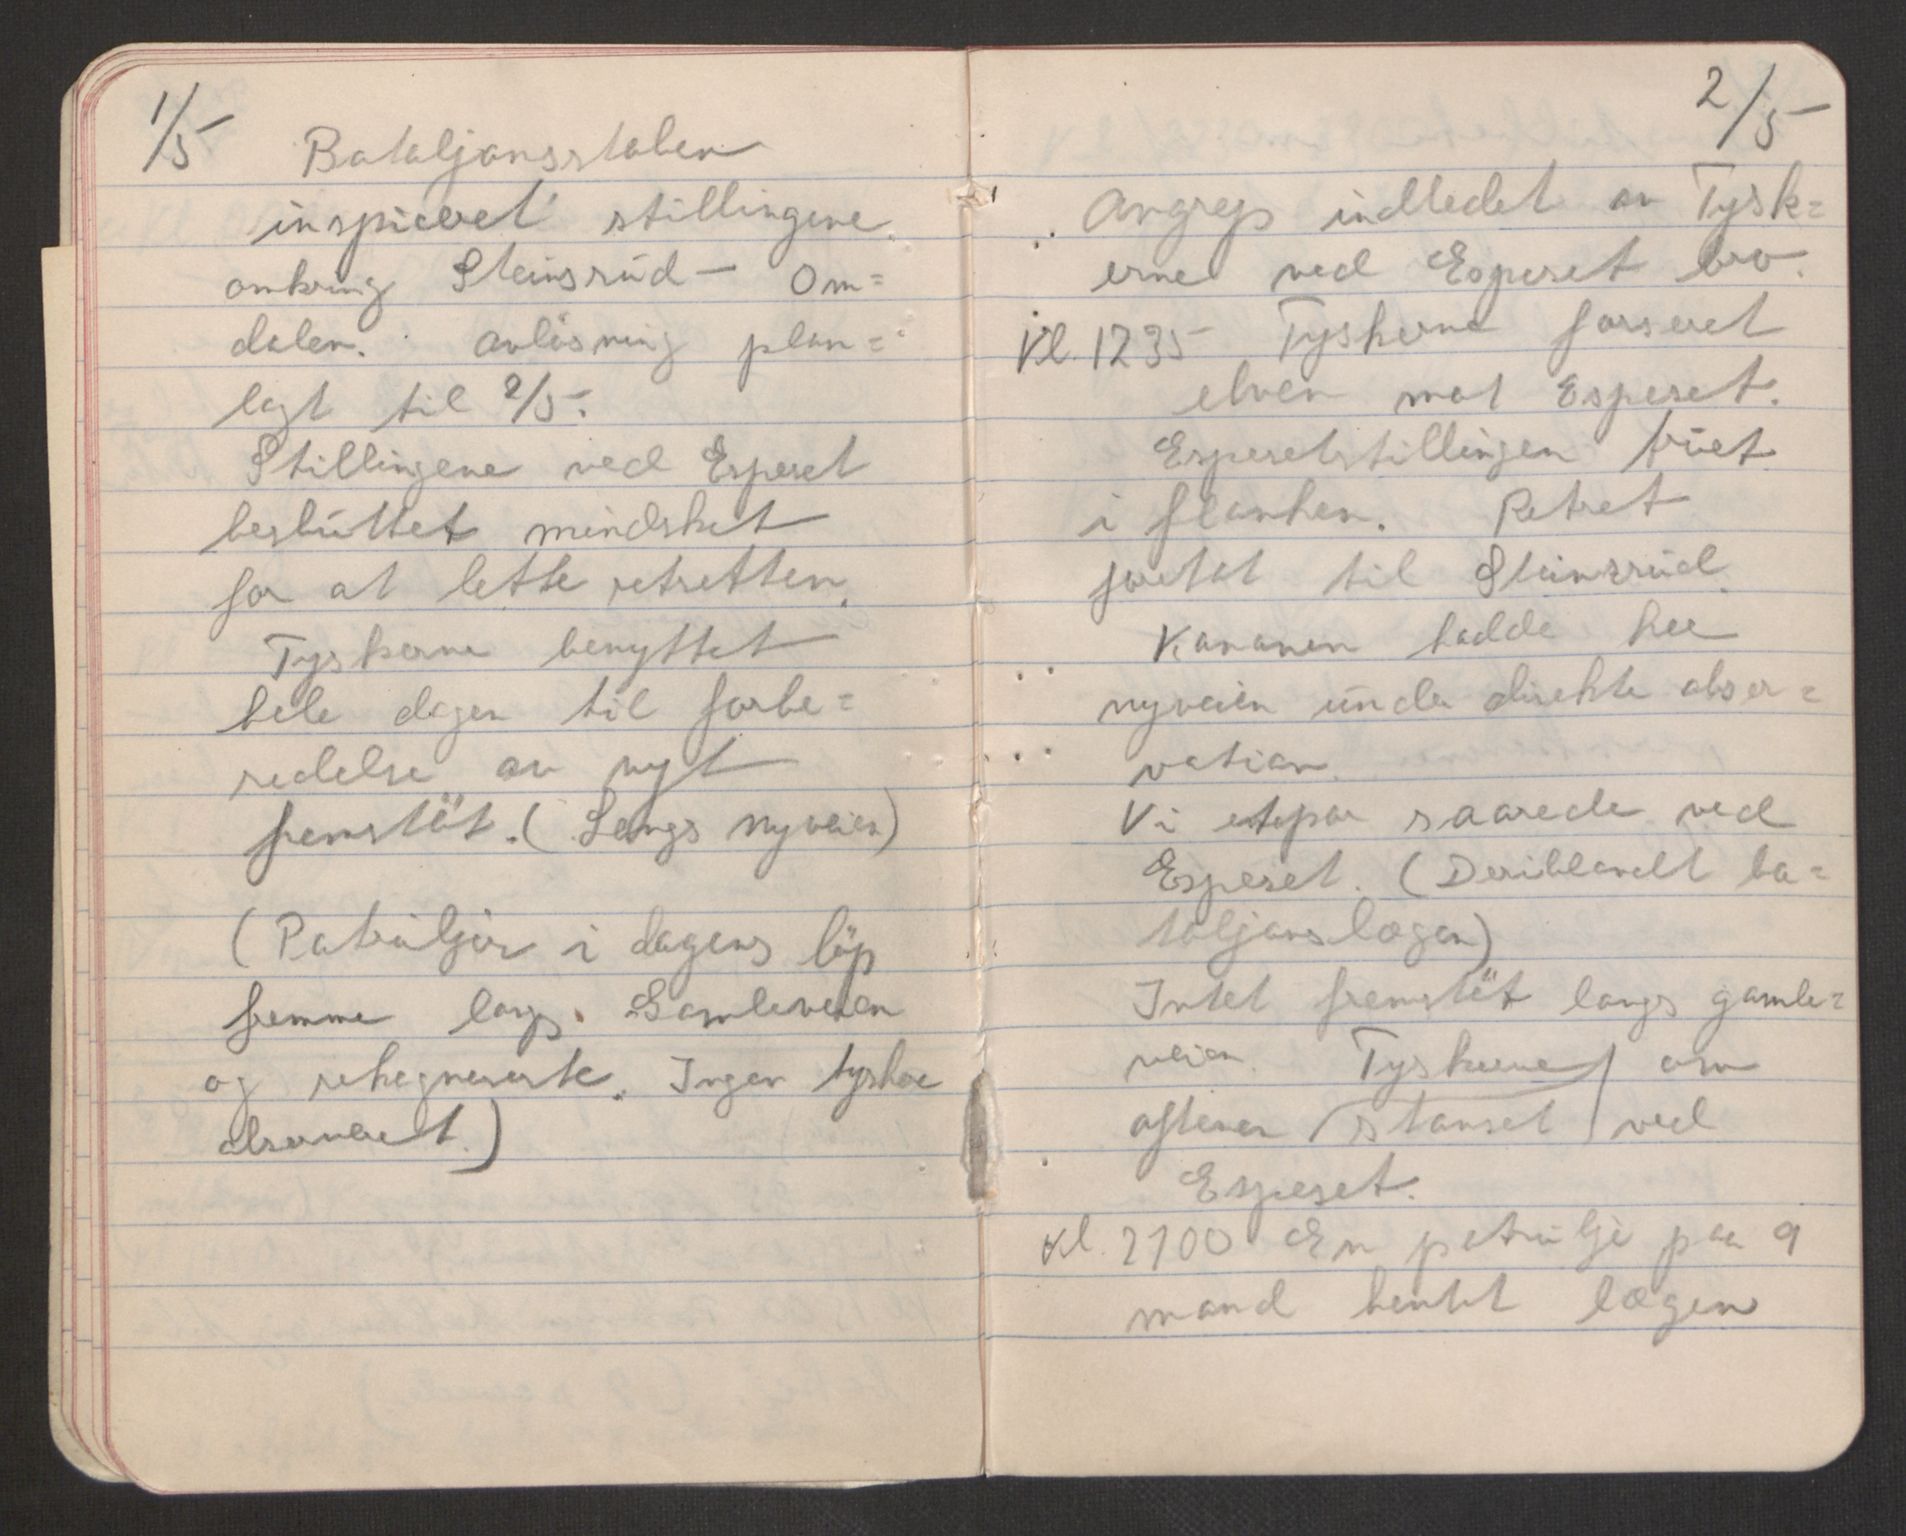 1/5
Bataljonsstaben
inspiceret stillingene
omkring Steinsrud - Om=
dalen. Avlösning plan=
lagt til 2/5.
Stillingene ved Esperet
besluttet mindsket
for at lette retretten.
Tyskerne benyttet
hele dagen til forbe=
redelse av nyt
fremstöt. (Langs nyveien)
(Patruljer i dagens löp
fremme langs Gamleveien
og rekognoserte. Ingen tyskere
observeret.)
2/5
Angrep indledet av Tysk=
erne ved Esperet bro.
Kl. 1235 Tyskerne forseret
elven mot Esperet.
Esperetstillingen truet
i flanken. Retret
foretat til Steinsrud.
Kanonen hadde hele
nyveien under direkte obser=
vation.
Vi etpar saarede ved
Esperet. (Deriblandt ba=
taljonslægen)
Intet fremstöt langs gamle=
veien. Tyskerne om
aftenen stanset ved
Esperet.
Kl. 2100 En patrulje paa 9
mand hentet lægen